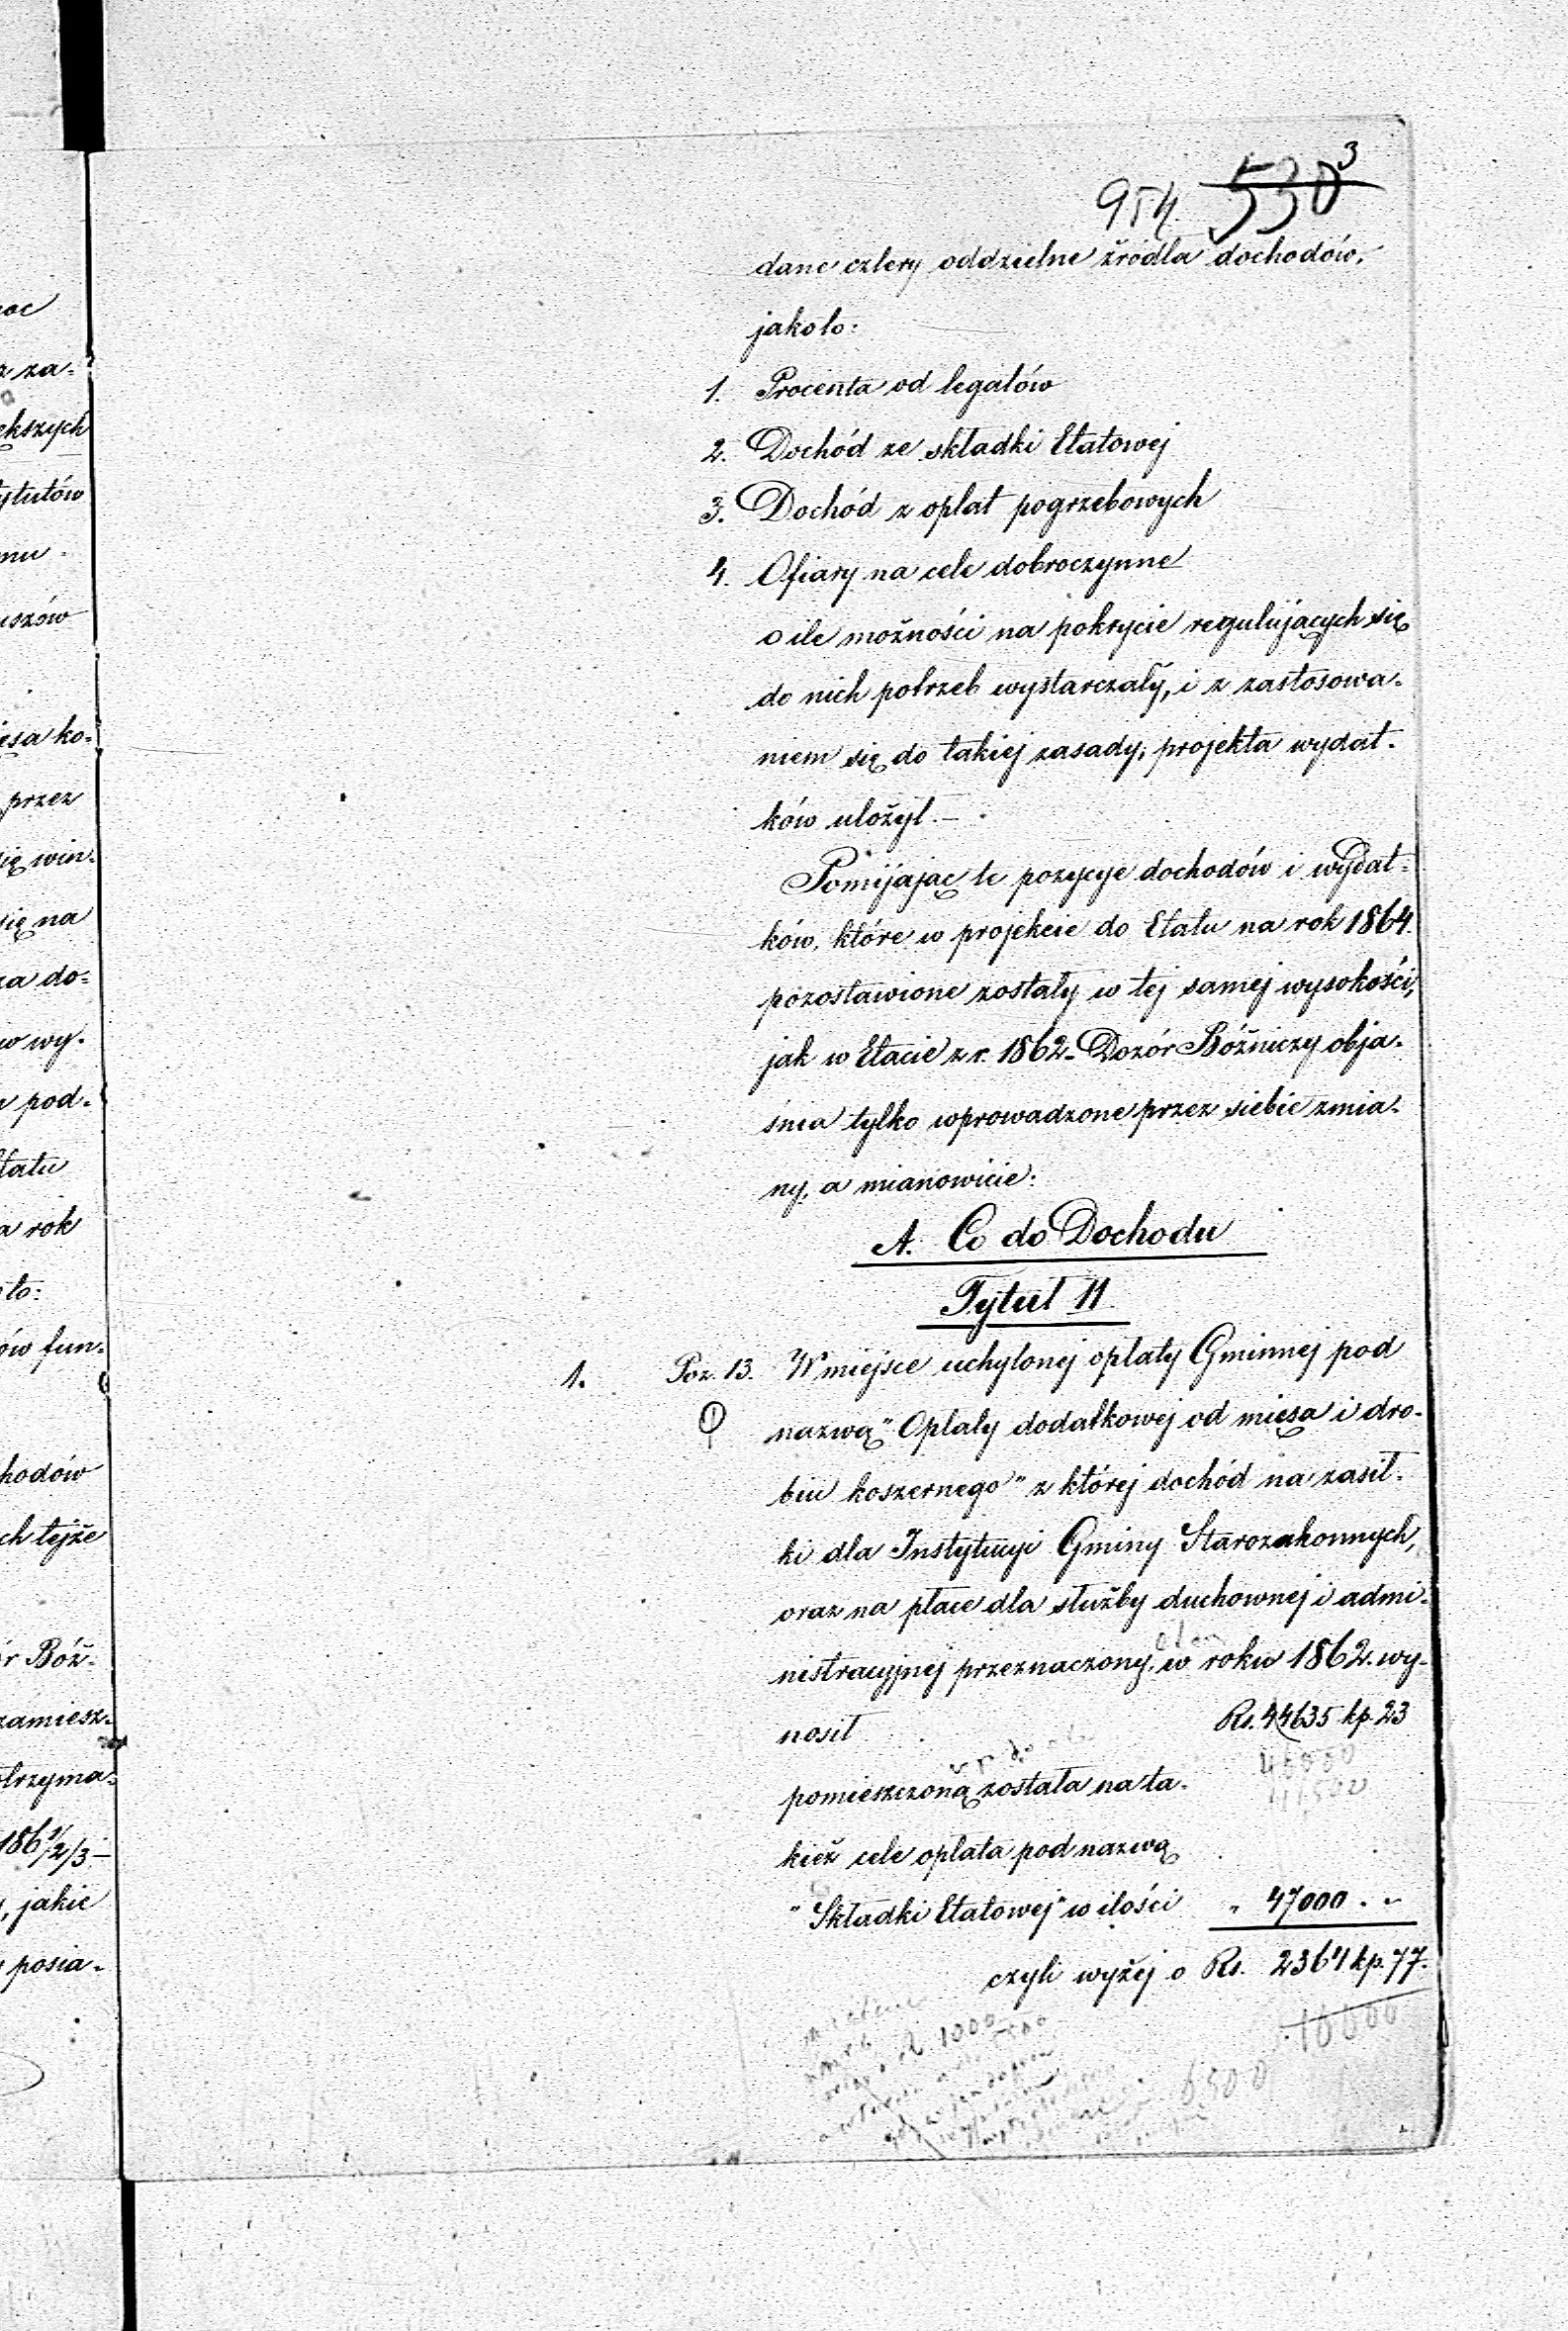 oc
z za-
ększych
ytutów
mu
uszów
ęsa ko-
przez
ię win-
się na
za do-
w wy-
pod-
tatu
a rok
to:
ów fun-
hodów
ch tejże
ór Bóż-
zamiesz-
otrzyma-
186 1/2/3
, jakie
posia-
3
954 530
dane cztery oddzielne źródła dochodów,
jakoto:
1. Procenta od legatów
2. Dochód ze składki Etatowej
3. Dochód z opłat pogrzebowych
4. Ofiary na cele dobroczynne
o ile możności na pokrycie regulujących się
do nich potrzeb wystarczały, i z zastosowa-
niem się do takiej zasady, projekta wydat-
ków ułożył.–
Pomijając te pozycye dochodów i wydat-
ków, które w projekcie do Etatu na rok 1864
pozostawione zostały w tej samej wysokości,
jak w Etacie z r. 1862. Dozór Bóżniczy obja-
śnia tylko wprowadzone przez siebie zmia-
ny, a mianowicie:
A. Co do Dochodu
Tytuł II
1. Poz. 13. W miejsce uchylonej opłaty Gminnej pod
nazwą "Opłaty dodatkowej od mięsa i dro-
biu koszernego" z której dochód na zasił-
ki dla Instytucyi Gminy Starozakonnych,
oraz na płace dla służby duchownej i admi-
nistracyjnej przeznaczony, w roku 1862. wy-
nosił Rs. 44635 kp. 23
46000
41500
pomieszczoną została na ta-
kież cele opłata pod nazwą
"Składki Etatowej" w ilości " 47000 . "
czyli wyżej o Rs. 2364 kp. 77.
10000
1000
6500